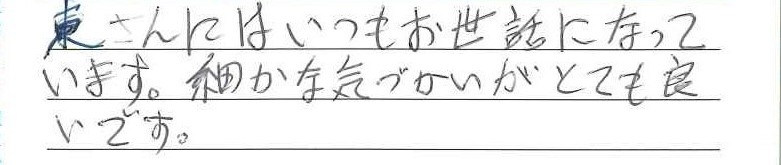 東さんにはいつもお世話になって
います。細かな気づかいがとても良
いです。